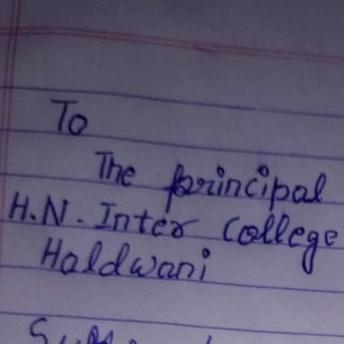 To
The principal
H.N. Inter College
Haldwani